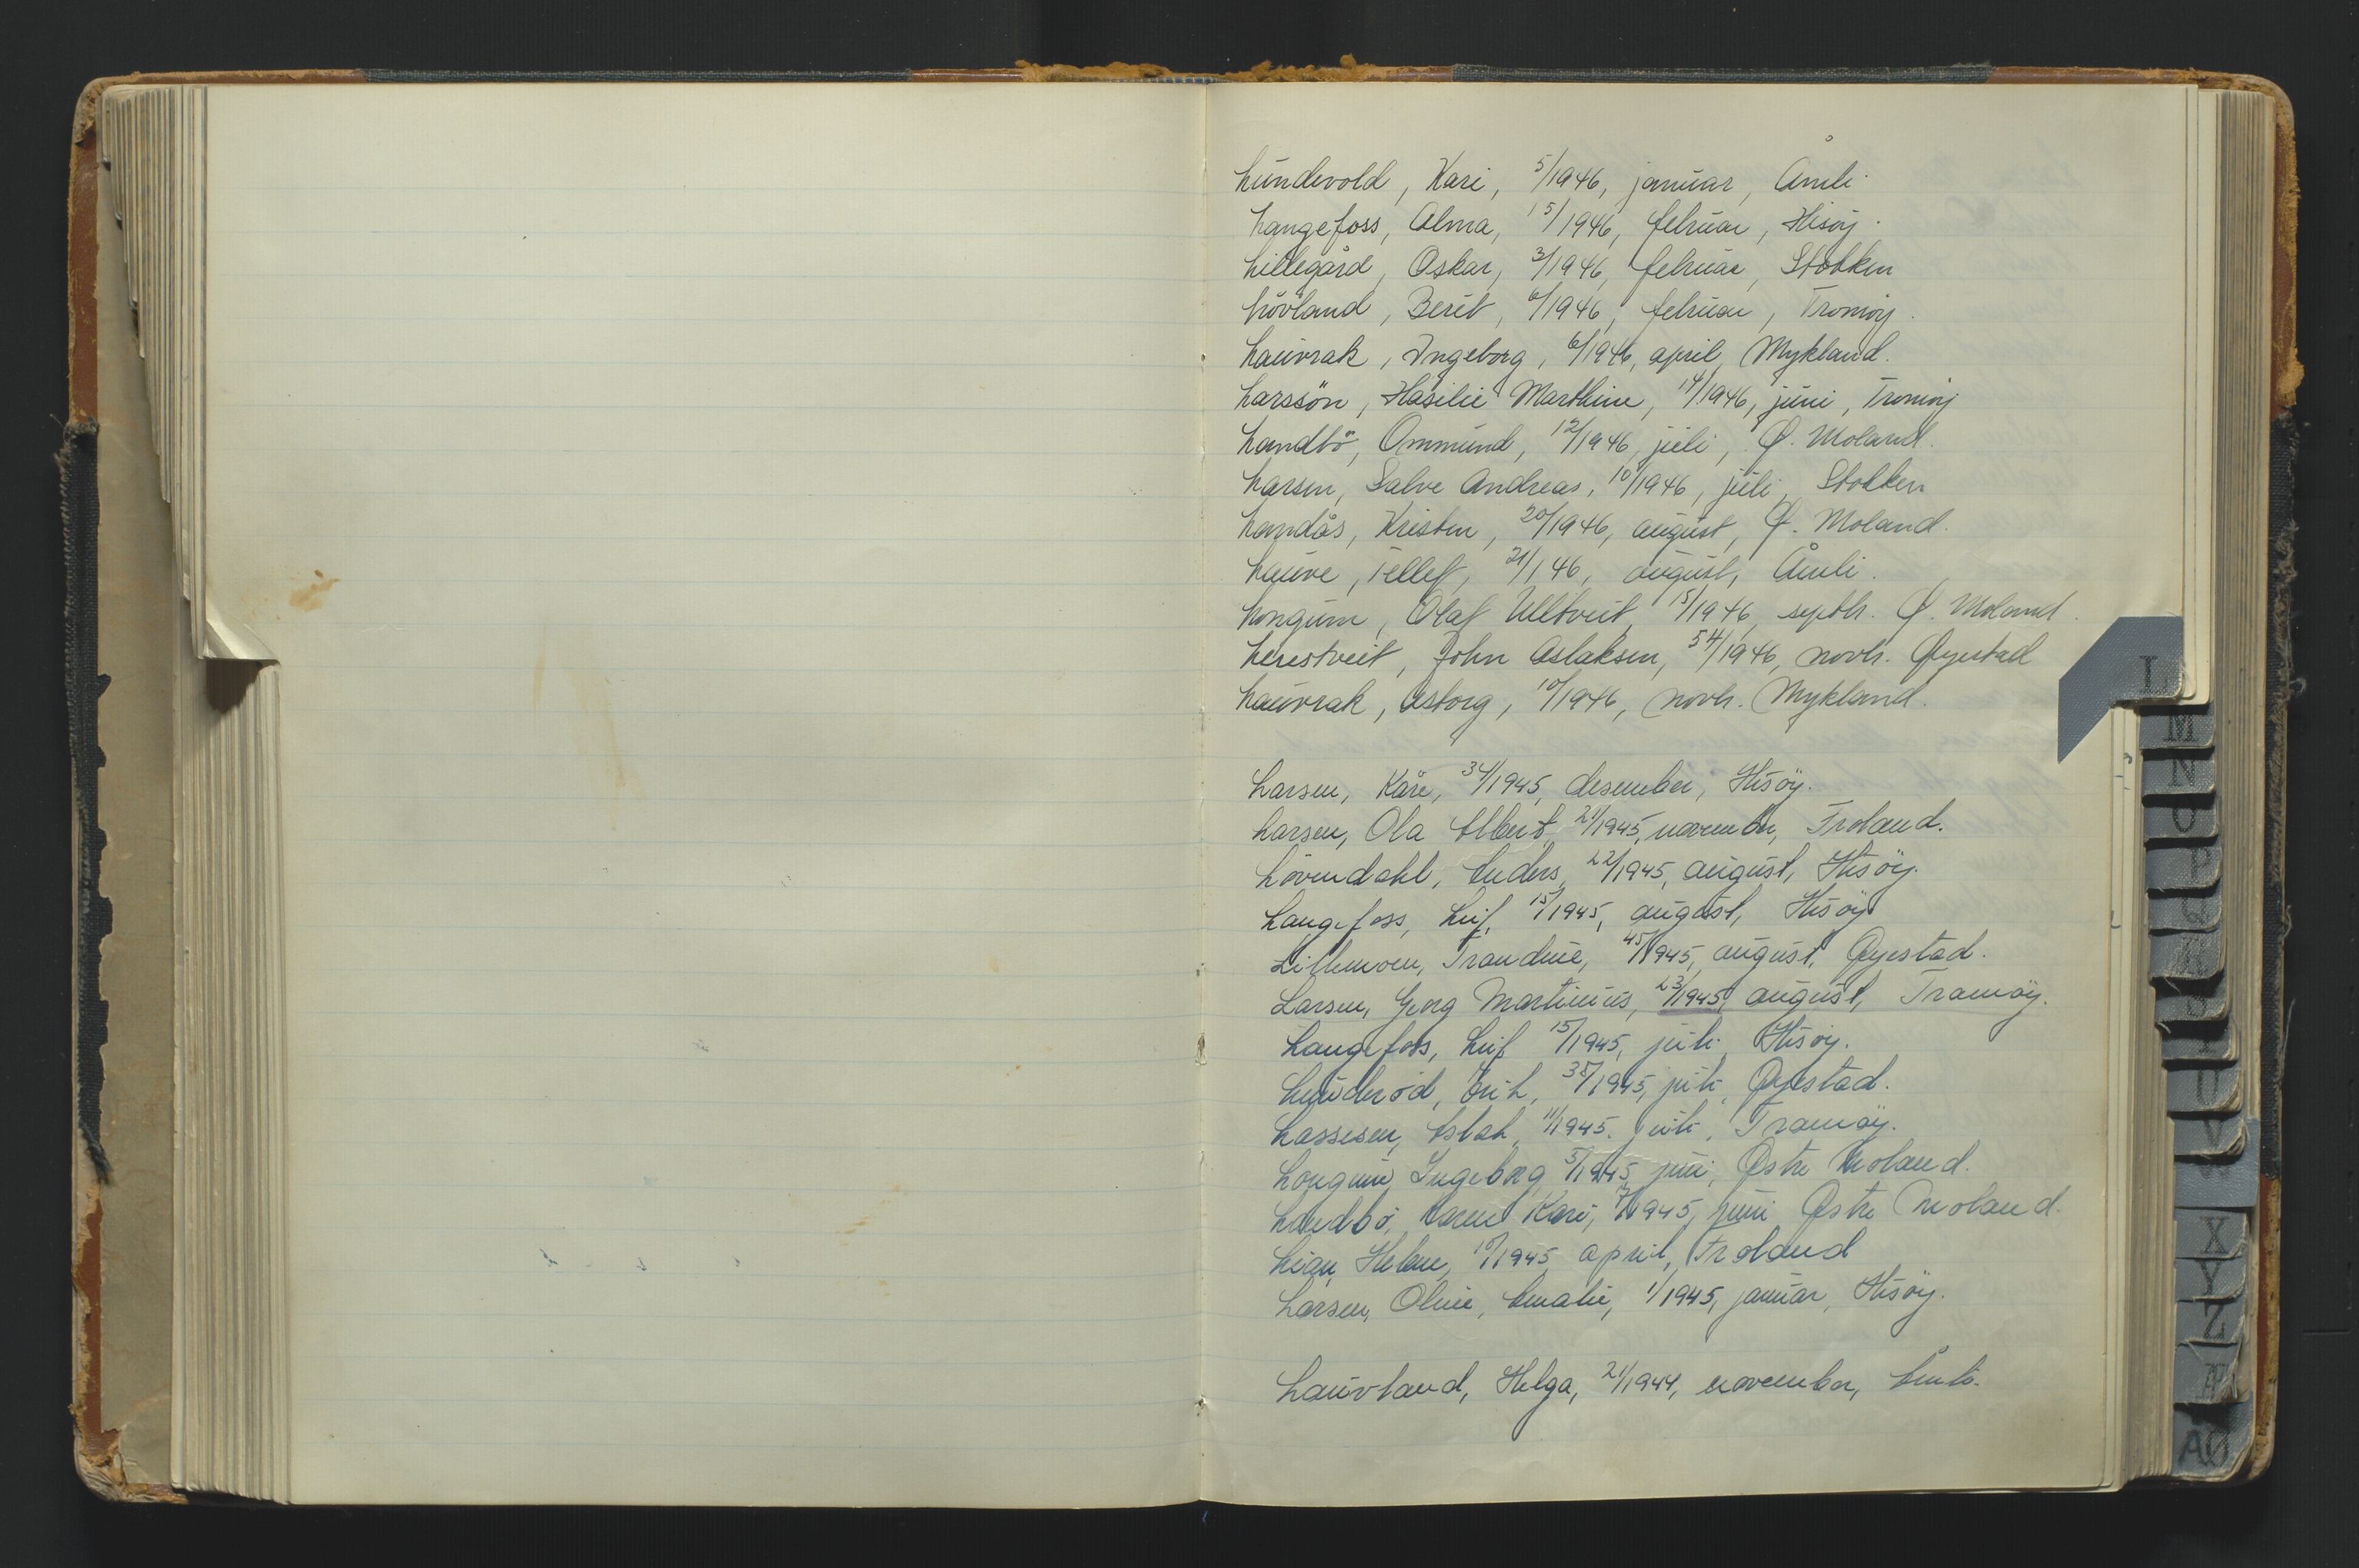 Lundevold, Kari, 5/1946, januar, Åmli.
Langefoss, Alma, 15/1946, februar, Hisøy.
Lillegård, Oskar, 3/1946, februar, Stokken
Lövland, Berit, 6/1946, februar, Tromöy.
Lauvrak, Ingeborg, 6/1946, april, Mykland.
Larssön, Hasilie Marthine, 14/1946, juni, Tromöy
Landbö, Ommund, 12/1946, juli, Ø. Moland.
Larsen, Salve Andreas, 10/1946, juli, Stokken
Landås, Kristen, 20/1946, august, Ø. Moland.
Lauve, Tellef, 21/146, august, Åmli.
Longum, Olaf Ulltveit, 15/1946, septbr. Ø. Moland.
Lerestveit, John Aslaksen, 54/1946, novbr. Øyestad
Lauvrak, Asborg, 10/1946, novbr. Mykland.
Larsen, Kåre, 34/1945, desember, Hisöy.
Larsen, Ola Albert, 21/1945, november, Froland.
Lövendahl, Anders, 22/1945, august, Hisöy.
Langefoss, Leif, 15/1945, august, Hisöy
Lillemoen, Trandine, 45/1945, august, Øyestad.
Larsen, Georg Martinius, 23/1945, august, Tromöy.
Langefoss, Leif 15/1945, juli, Hisöy.
Lunderöd, Erik, 38/1945, juli, Øyestad.
Lassesen, Aslak, 11/1945, juli, Tromöy.
Longum, Ingeborg 5/1945, juni, Østre Moland.
Landbö, Karen Kari, 7/1945, juni Østre Moland.
Lian, Helene, 10/1945, april, Froland
Larsen, Oline, Amalie, 1/1945, januar, Hisöy.
Lauvland, Helga, 21/1944, november, Åmli.
L
M
N
O
P
Q
R
S
T
U
V
X
Y
Z
Æ
AØ